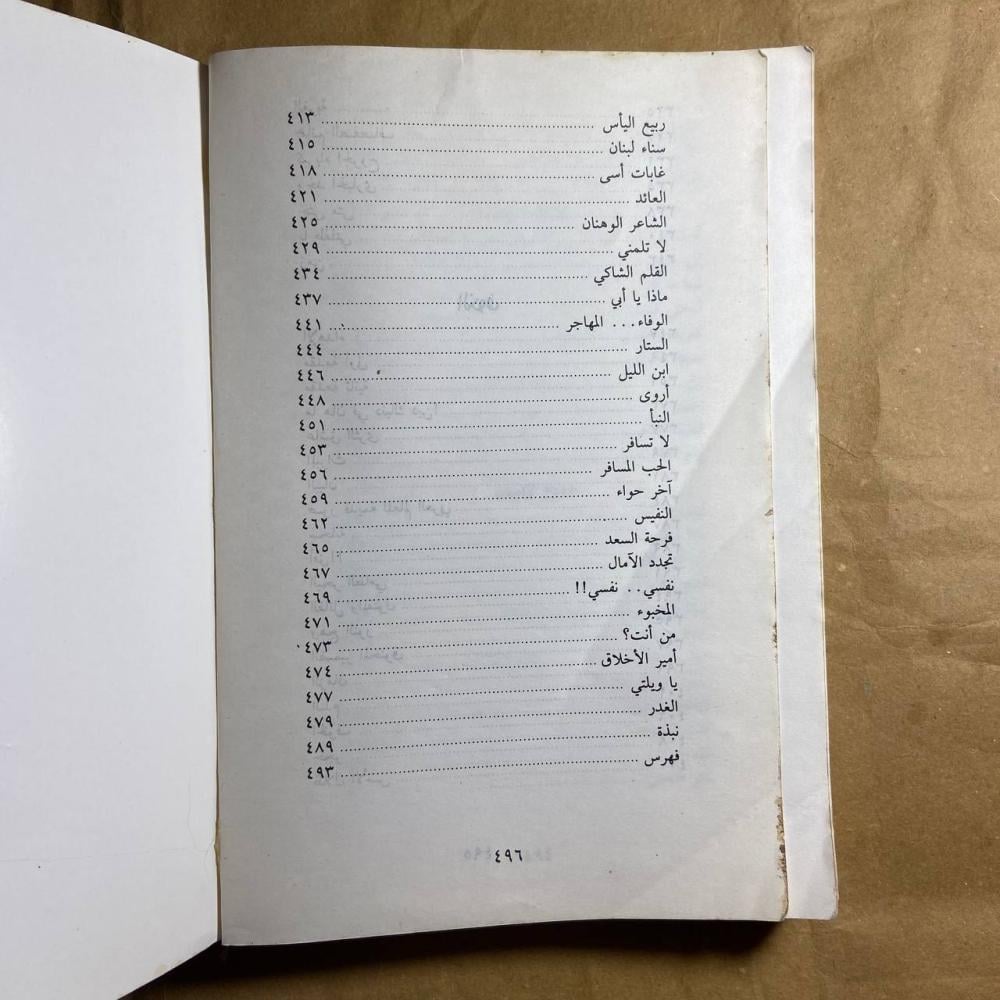 ربيع اليأس ................ ٤١٣
سناء لبنان ................ ٤١٥
غابات أسى ................ ٤١٨
العائد ................ ٤٢١
الشاعر الوهنان ................ ٤٢٥
لا تلمني ................ ٤٢٩
القلم الشاكي ................ ٤٣٤
ماذا يا أبي ................ ٤٣٧
الوفاء... المهاجر ................ ٤٤١
الستار ................ ٤٤٤
ابن الليل ................ ٤٤٦
أروى ................ ٤٤٨
النبأ ................ ٤٥١
لا تسافر ................ ٤٥٣
الحب المسافر ................ ٤٥٦
آخر حواء ................ ٤٥٩
النفيس ................ ٤٦٢
فرحة السعد ................ ٤٦٥
تجدد الآمال ................ ٤٦٧
نفسي.. نفسي!! ................ ٤٦٩
المخبوء ................ ٤٧١
من أنت؟ ................ ٤٧٣
أمير الأخلاق ................ ٤٧٤
يا ويلتي ................ ٤٧٧
الغدر ................ ٤٧٩
نبذة ................ ٤٨٩
فهرس ................ ٤٩٣
٤٩٦